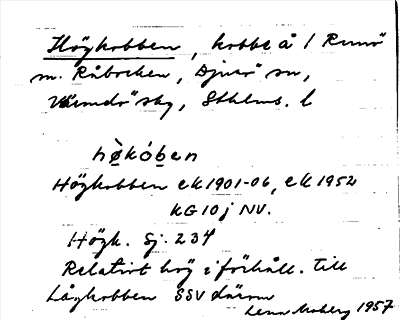 Högkobben, kobbe å / Runö
m. Råbocken, Djurö sn,
Värmdö skg, Sthlms. l
hø̀kóben
Högkobben ek 1901-06, ek 1952
KG 10 j NV.
Högk. Sj. 234
Relativt hög i förhåll. till
Lågkobben SSV därom
Lena Moberg 1957